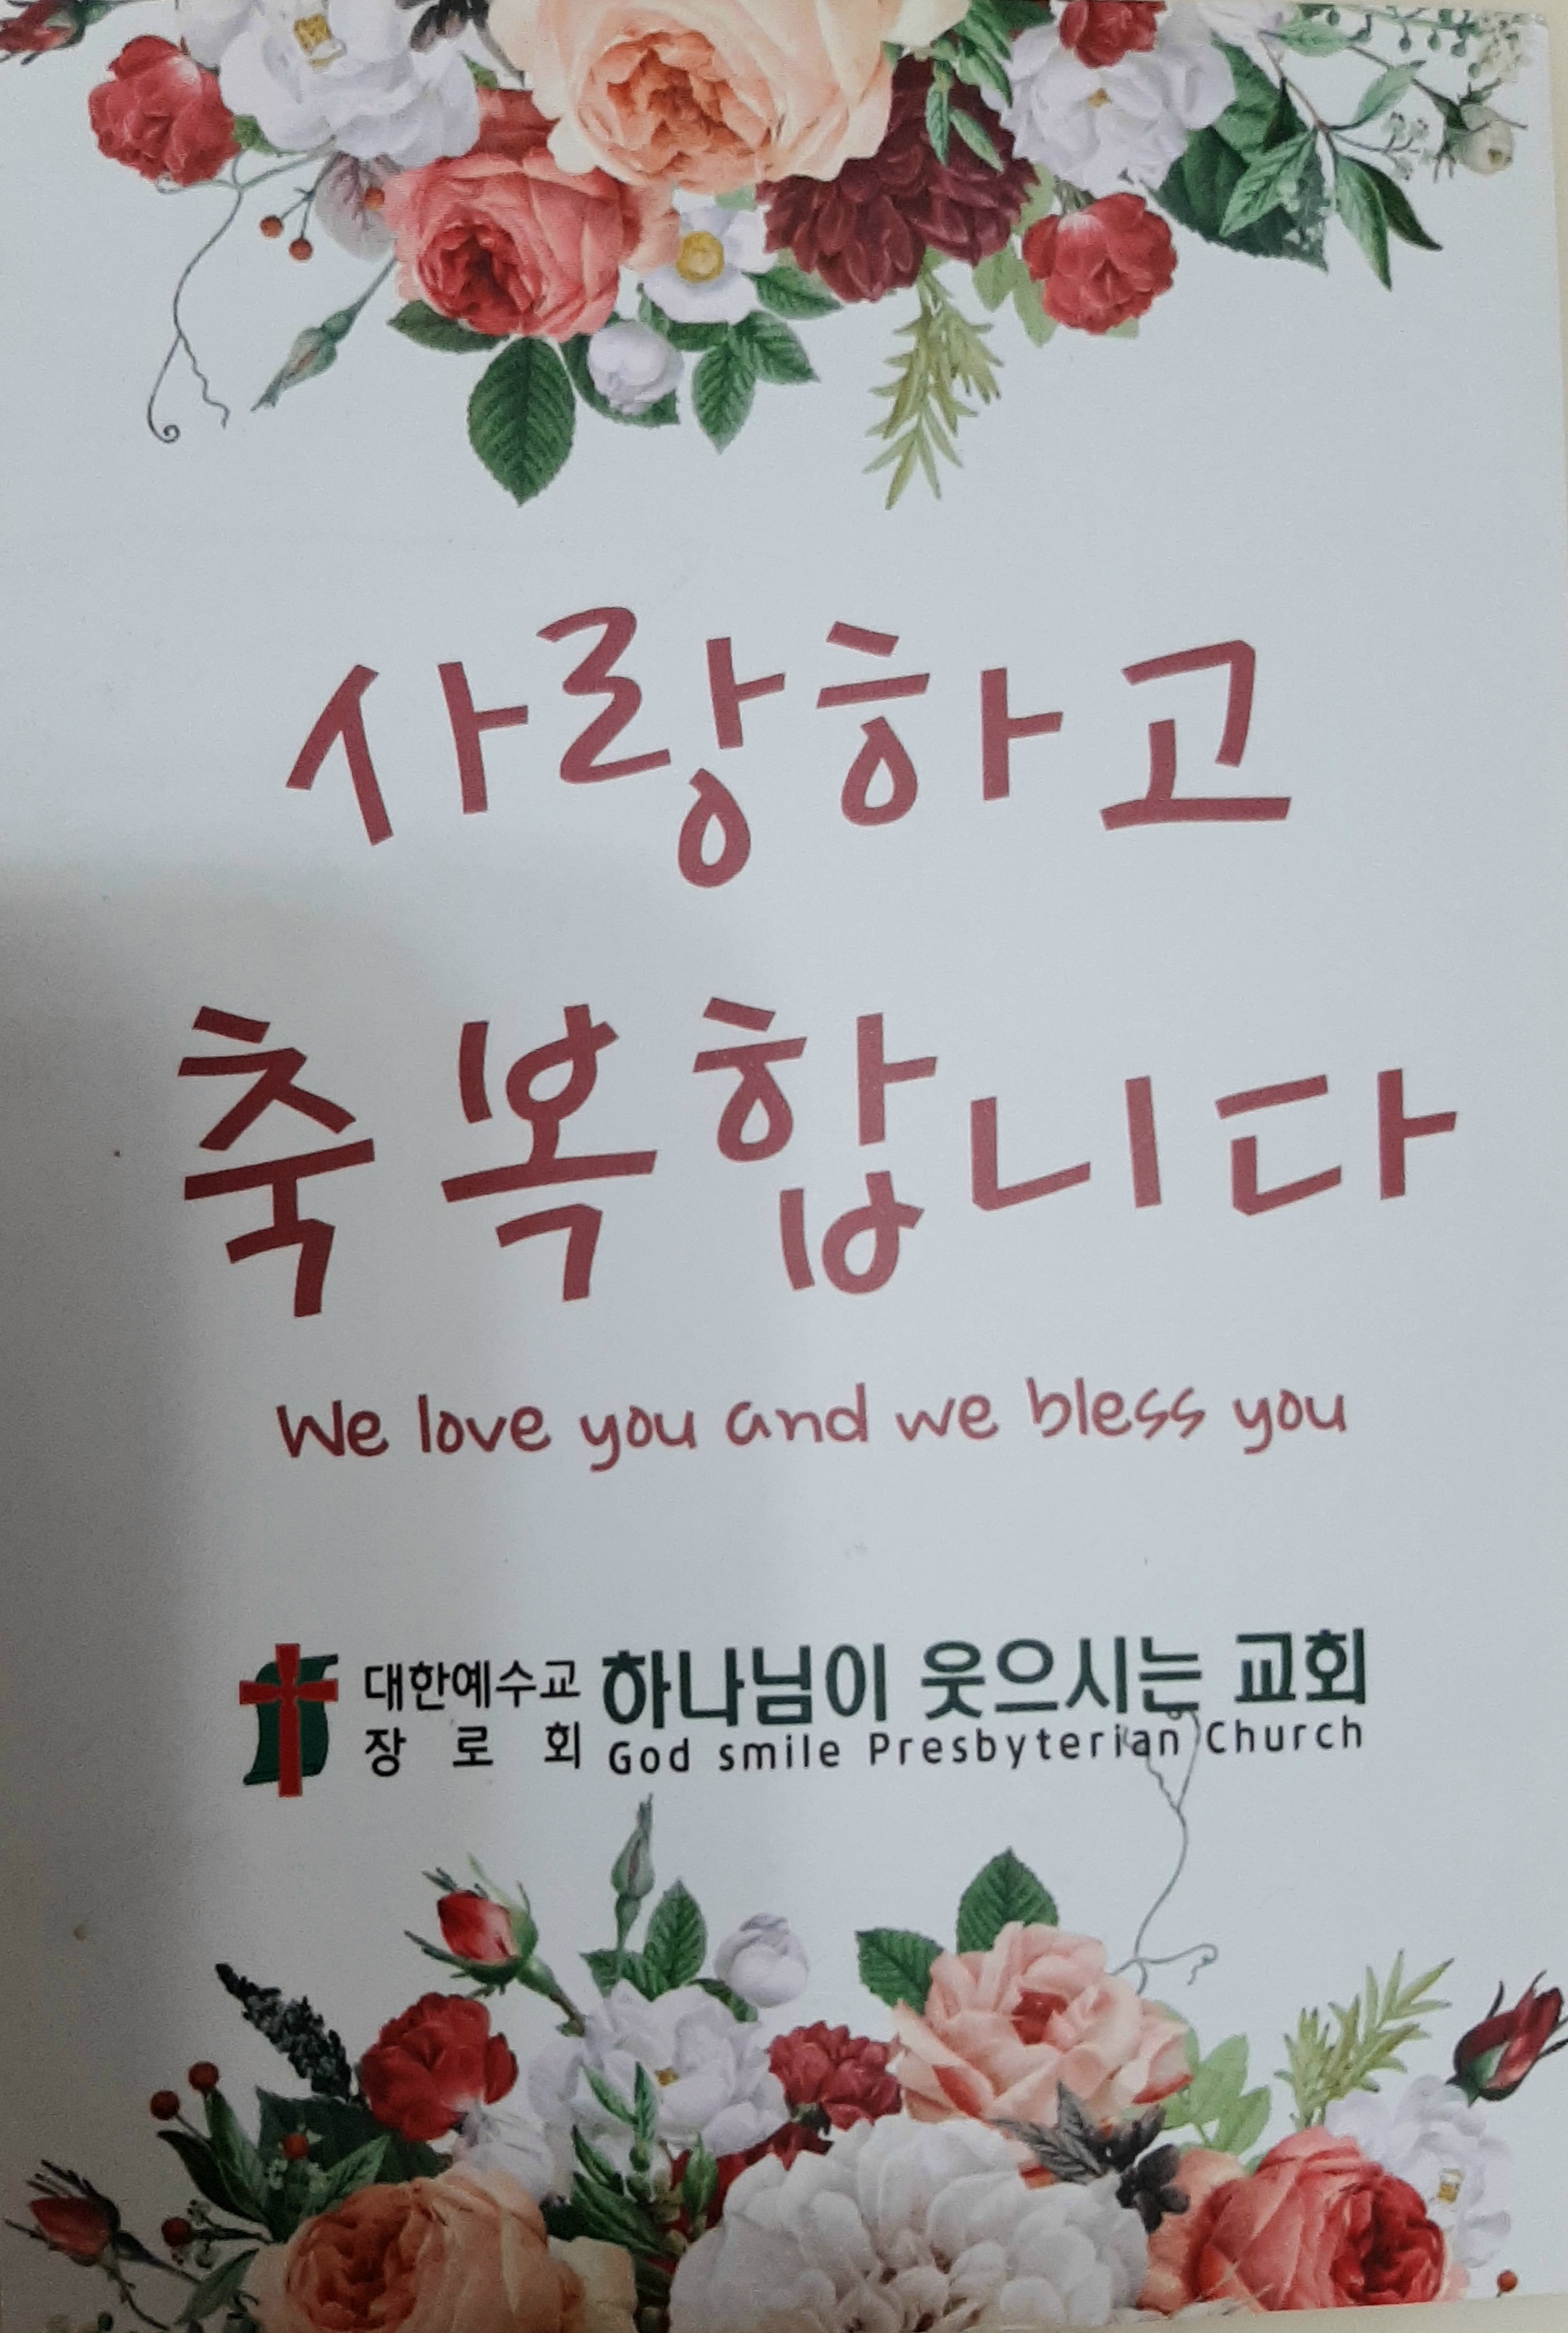 사랑하고
축복합니다
We love you and we bless you
대한예수교 하나님이 웃으시는 교회
장 로 회 God smile Presbyterian Church